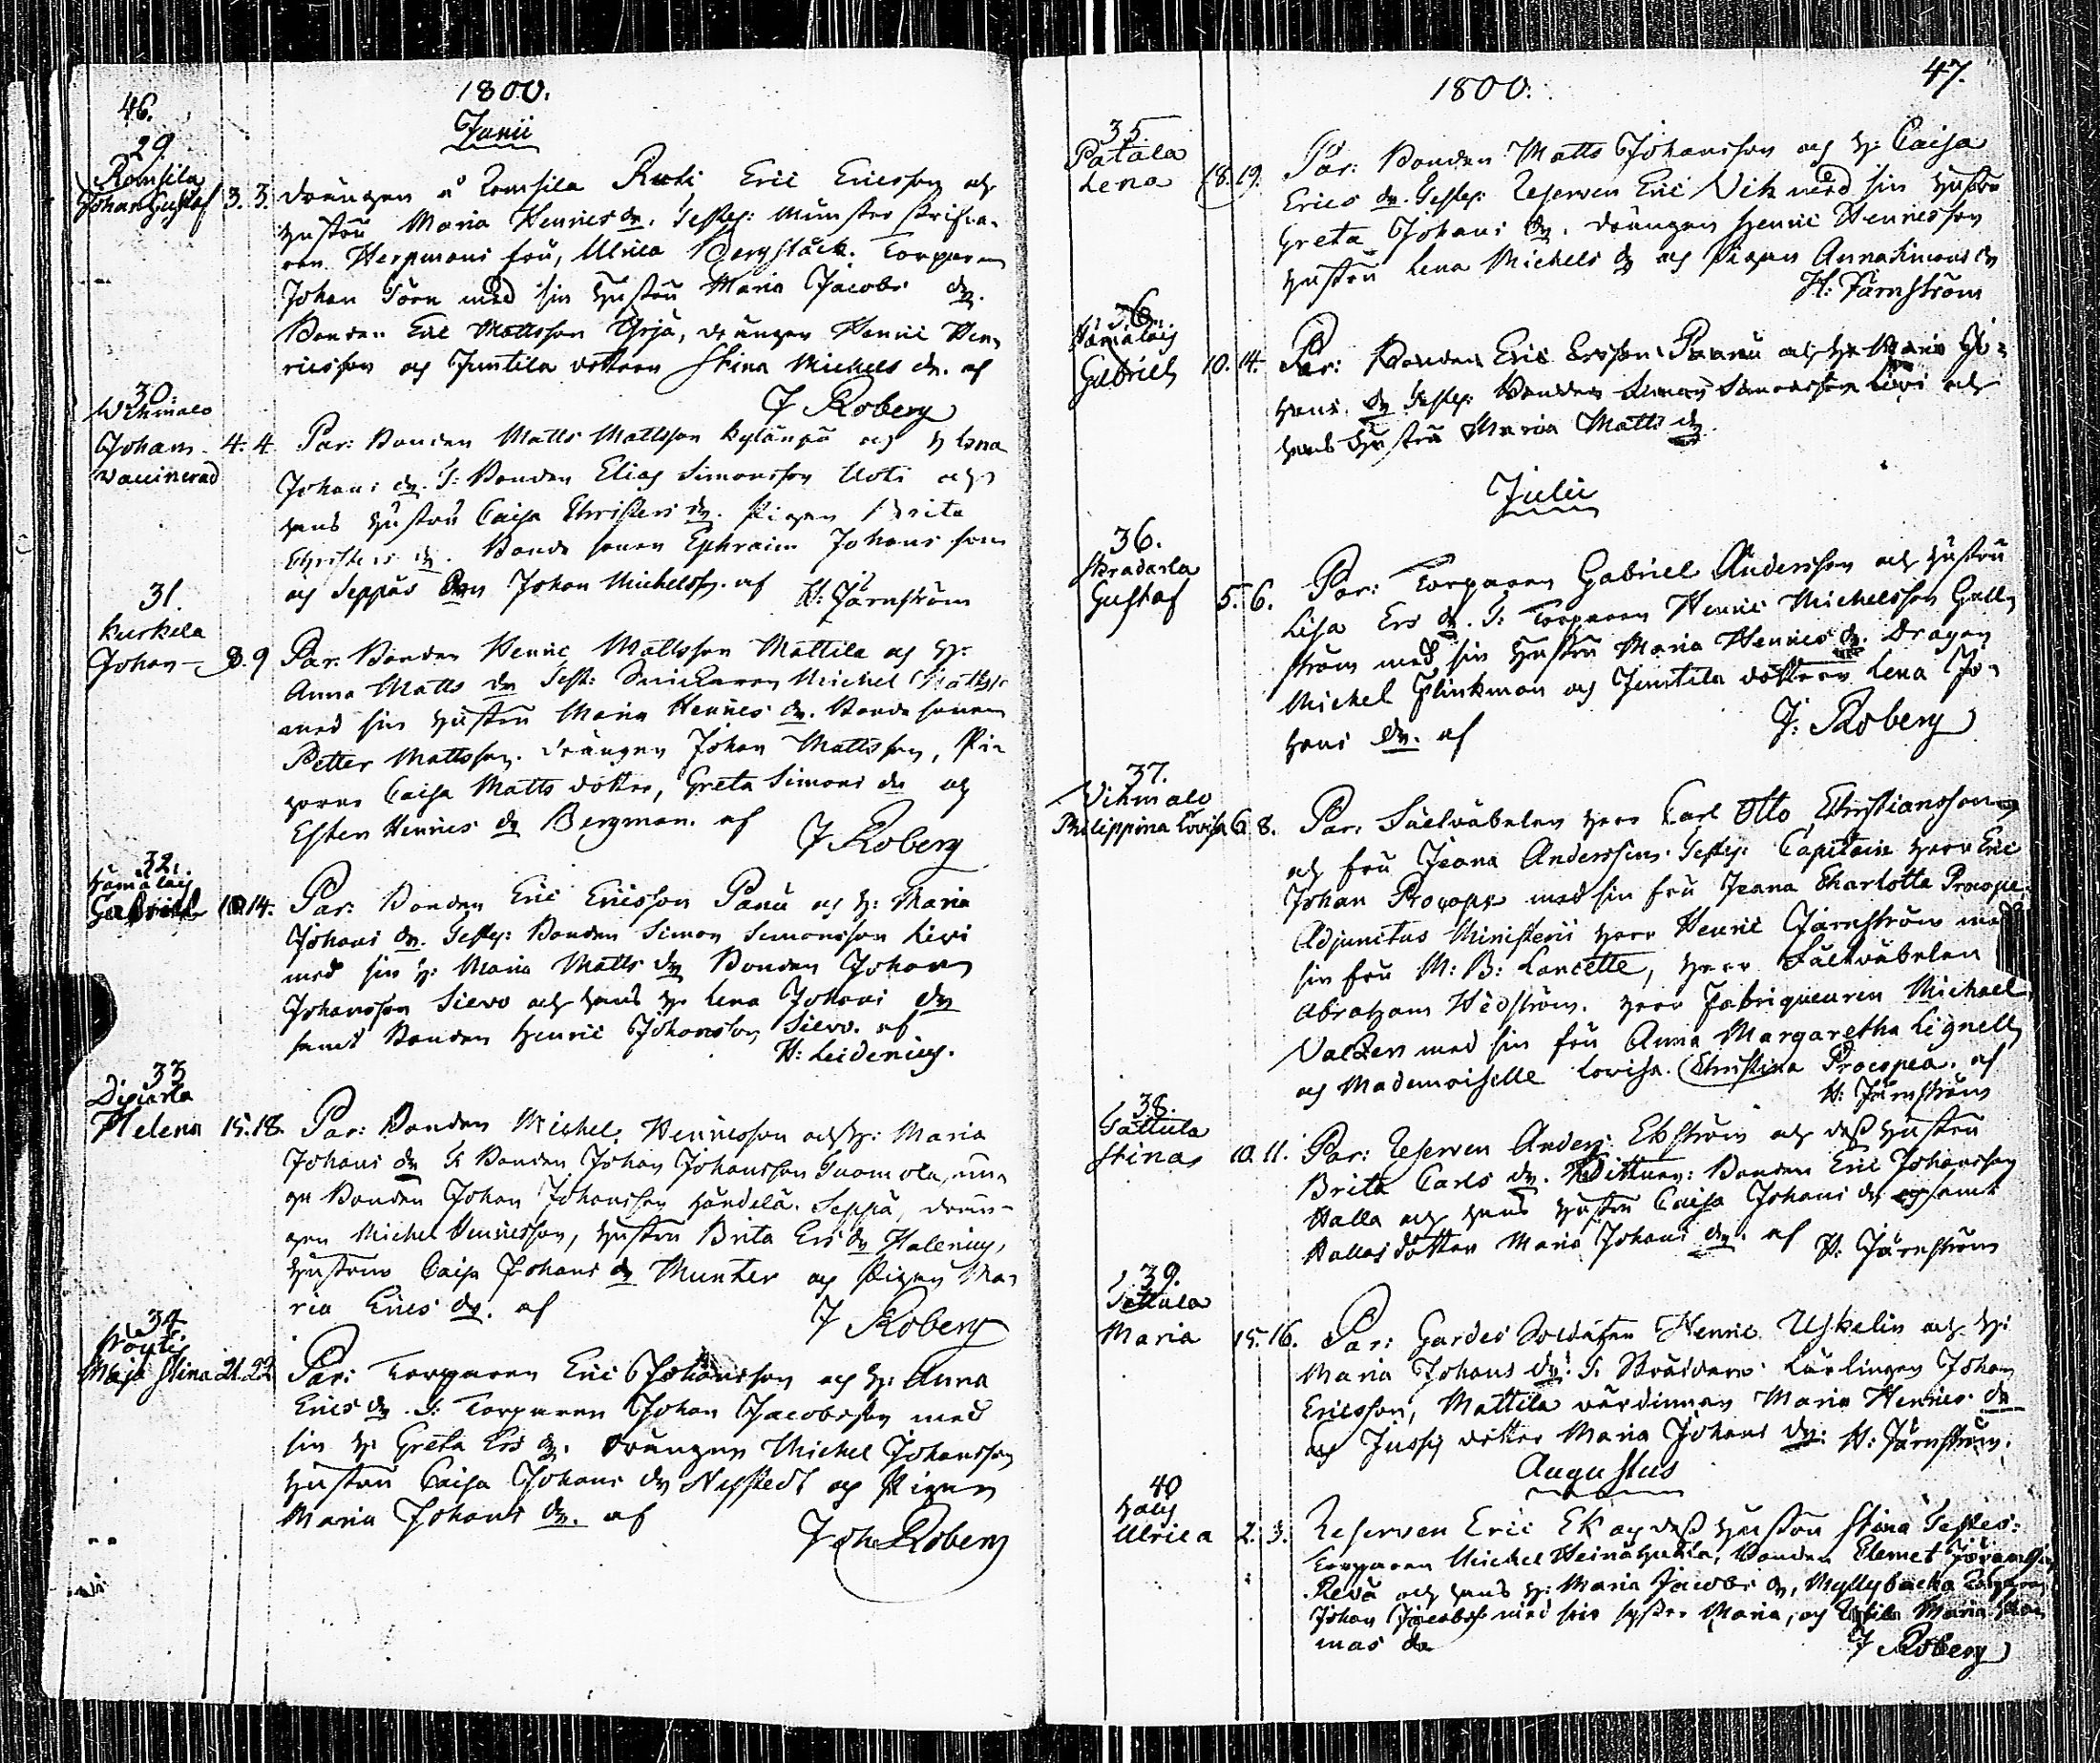 46.
1800.
Junii
29.
Romsila
Johan Gustaf 3. 3. Drängen å Romsila Ruti Eric Ericsson och
hustru Maria Henrics dr. Testes: Munster skrifva-
ren Herpmans fru, Ulrica Bergstäck. Torparen
Johan Törn med sin hustru Maria Jacobs dr.
Bonden Eric Mattsson Yrjä, drängen Henric Hen-
ricsson och Juntila dottren Stina Michels dr. af
J Roberg
30.
Wihmalo
Johan 4. 4. Par: Bonden Matts Mattsson Kylänpä och h. Lena
vaccinerad
Johans dr. T: Bonden Elias Simonsson Uoti och
hans hustru Caisa Christers dr. Pigan Brita
Christers dr. Bonde sonen Ephraim Johans son
och Seppäs Johan Michelss. af H: Järnström
31.
Kurkela
Johan 8. 9 Par: Bonden Henric Mattsson Mattila och h:
Anna Matts dr Test: Snickaren Michel Mattss.
med sin hustru Maria Henrics dr. Bonde sonen
Petter Mattsson. Drängen Johan Mattsson, Pi-
gorne Caisa Matts dotter, Greta Simons dr och
Esther Henrics dr Bergman. af J Roberg
32.
Hämäläis
Gabriel 10. 14. Par: Bonden Eric Ericsson Panu och h: Maria
Johans dr. Testes: Bonden Simon Simonsson Livi
med sin h: Maria Matts dr Bonden Johan
Johansson Sievo och hans h: Lena Johans dr
samt Bonden Henric Johansson Sievo. af
H: Leidenius.
33
Helena 15. 18. Par: Bonden Michel Henricsson och h: Maria
Johans dr T: Bonden Johan Johansson Suomola, un-
ge Bonden Johan Johansson Händelä. Seppä, drän-
gen Michel Henricsson, hustru Brita Ers dr Halenius,
hustrun Caisa Johans dr Munter och Pigan Ma-
ria Erics dr. af J Roberg
34
Maja Stina 21. 22. Par: Torparen Eric Johansson och h: Anna
Erics dr. T: Torparen Johan Jacobsson med
sin h: Greta Ers dr. Drängen Michel Johansson
hustru Caisa Johans dr Nystedt och Pigan
Maria Johans dr. af
Joh Roberg
47.
1800.
35.
Patala
Lena 18. 19. Par: Bonden Matts Johansson och h: Caisa
Erics dr. Testes: Reserven Eric Vik med sin hustru
Greta Johans dr. Drängen Henric Henricsson
hustru Lena Michels dr och Pigan Anna Simons dr
H: Järnström
36.
Hämäläis
Gabriel 10. 14. Par: Bonden Eric Ersson Paanu och h: Maria Jo-
hans dr Testes: Bonden Simon Simonsson Livi och
hans hustru Maria Matts dr.
Julii
36.
Gustaf 5. 6. Par: Torparen Gabriel Andersson och hustru
Lisa Ers dr. T: Torparen Henric Michelsson Gall-
ström med sin hustru Maria Henrics dr. Dragon
Michel Flinkman och Juntila dottren Lena Jo-
hans dr. af J: Roberg
37.
Vihmalo
Philippina Lovisa 6. 8. Par: Fältväbelen Herr Carl Otto Christiansson
och fru Jeana Anderssens. Testes: Capitain Herr Eric
Johan Procopé med sin fru Jeana Charlotta Procopé.
Adjunctus Ministerii Herr Henric Järnström med
sin fru M: B: Lancette, Herr Fältväbelen
Abraham Hedström. Herr Fabriqueuren Michael
Valzen med sin fru Anna Margaretha Lignell
och Mademoiselle Lovisa Christina Procopea. af
H: Järnström
38.
Sattula
Stina 10. 11. Par: Reserven Anders Ekström och dess hustru
Brita Carls dr. Vittnen: Bonden Eric Johansson
Halla och hans hustru Caisa Johans dr samt
Hallas dotter Maria Johans dr. af H: Järnström
39.
Sattula
Maria 15. 16. Par: Gardes Soldaten Henric Uskelin och h:
Maria Johans dr. T: Skräddare Lärlingen Johan
Ericsson, Mattila värdinnan Maria Henrics dr
och Jussis dotter Maria Johans dr. H: Järnström.
Augustus
40
Ulrica 2. 3. Reserven Eric Ek och dess hustru Stina Testes:
Torparen Michel Heinähuhta, Bonden Clemet Göransson
Revä och hans h: Maria Jacobs dr, Myllybacka
Johan Jacobss. med sin syster Maria, och Maria
mas dr J Roberg